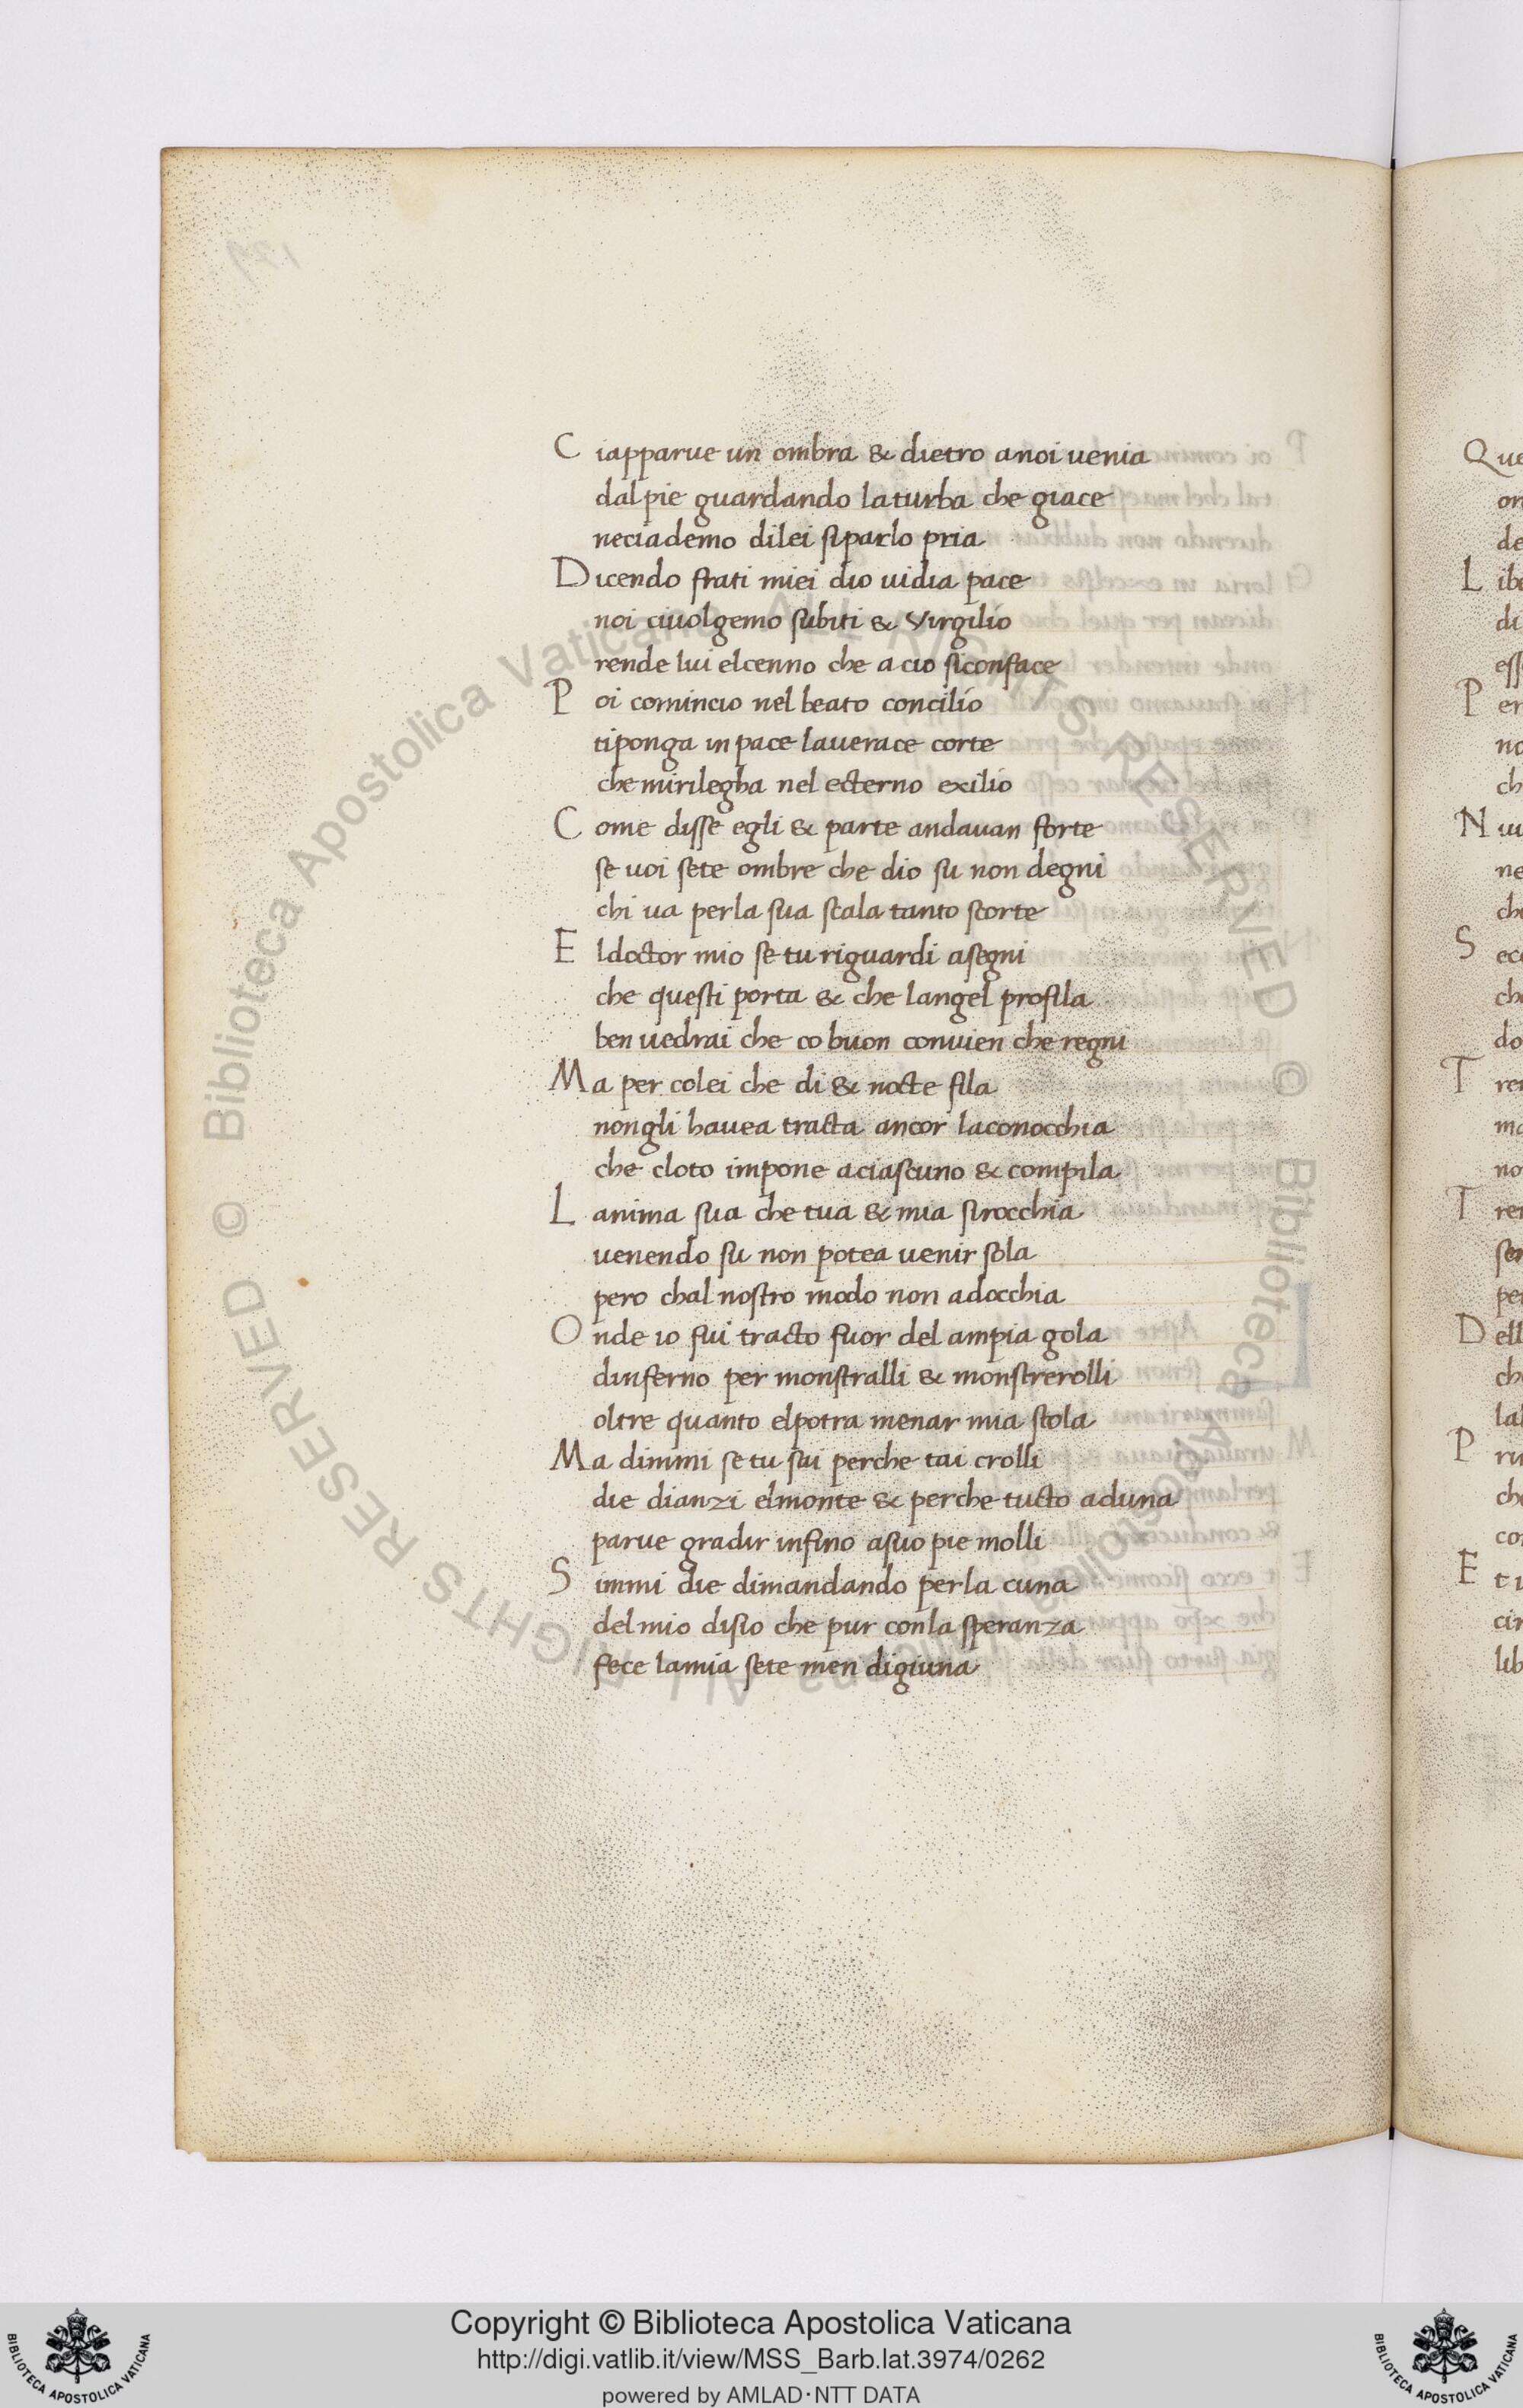 C iapparue un ombra & dietro anoi uenia
dalpie guardando laturba che giace
neciademo dilei siparlo pria
D icendo frati miei dio uidia pace
noi ciuolgemo subiti & Virgilio
rende lui elcenno che acio siconface
P oi comincio nel beato concilio
tiponga in pace lauerace corte
che mirilegha nel ecterno exilio
C ome disse egli & parte andauan forte
se uoi sete ombre che dio su non degni
chi ua perla sua scala tanto scorte
E ldoctor mio se tu riguardi asegni
che questi porta & che langel profila
ben uedrai che co buon conuien che regni
M a per colei che di & nocte fila
nongli hauea tracta ancor laconocchia
che cloto impone aciascuno & compila
L anima sua che tua & mia sirocchia
uenendo su non potea uenir sola
pero chal nostro modo non adocchia
O nde io fui tracto fuor del ampia gola
dinferno per monstralli & monstrerolli
oltre quanto elpotra menar mia scola
M a dimmi se tu sai perche tai crolli
die dianzi elmonte & perche tucto aduna
parue gradir infino asuo pie molli
S immi die dimandando perla cuna
del mio disio che pur conla speranza
fece lamia sete men digiuna
Que
L ibe
di
ess
P er
no
ch
N iu
ne
che
S ecc
che
do
T rer
ma
no
T rer
per
D ell
che
lal
P ru
che
cor
E t i
cir
lib
© Biblioteca Apostolica Vaticana ALL RIGHTS RESERVED © Biblioteca Apostolica Vaticana ALL RIGHTS RESERVED
Copyright © Biblioteca Apostolica Vaticana
http://digi.vatlib.it/view/MSS_Barb.lat.3974/0262
powered by AMLAD·NTT DATA
BIBLIOTECA APOSTOLICA VATICANA
BIBLIOTECA APOSTOLICA VATICANA